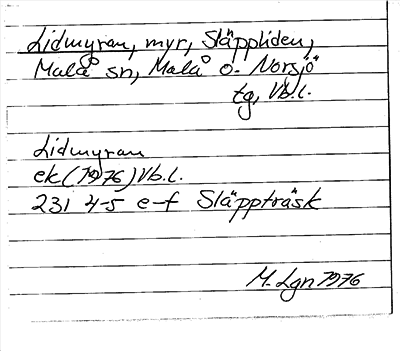 Lidmyran, myr, Släppliden,
Malå sn, Malå o. Norsjö
tg, Vb.l.
Lidmyran
ek (1976) Vb.l.
231 4-5 e-f Släppträsk
M. Lgn 1976